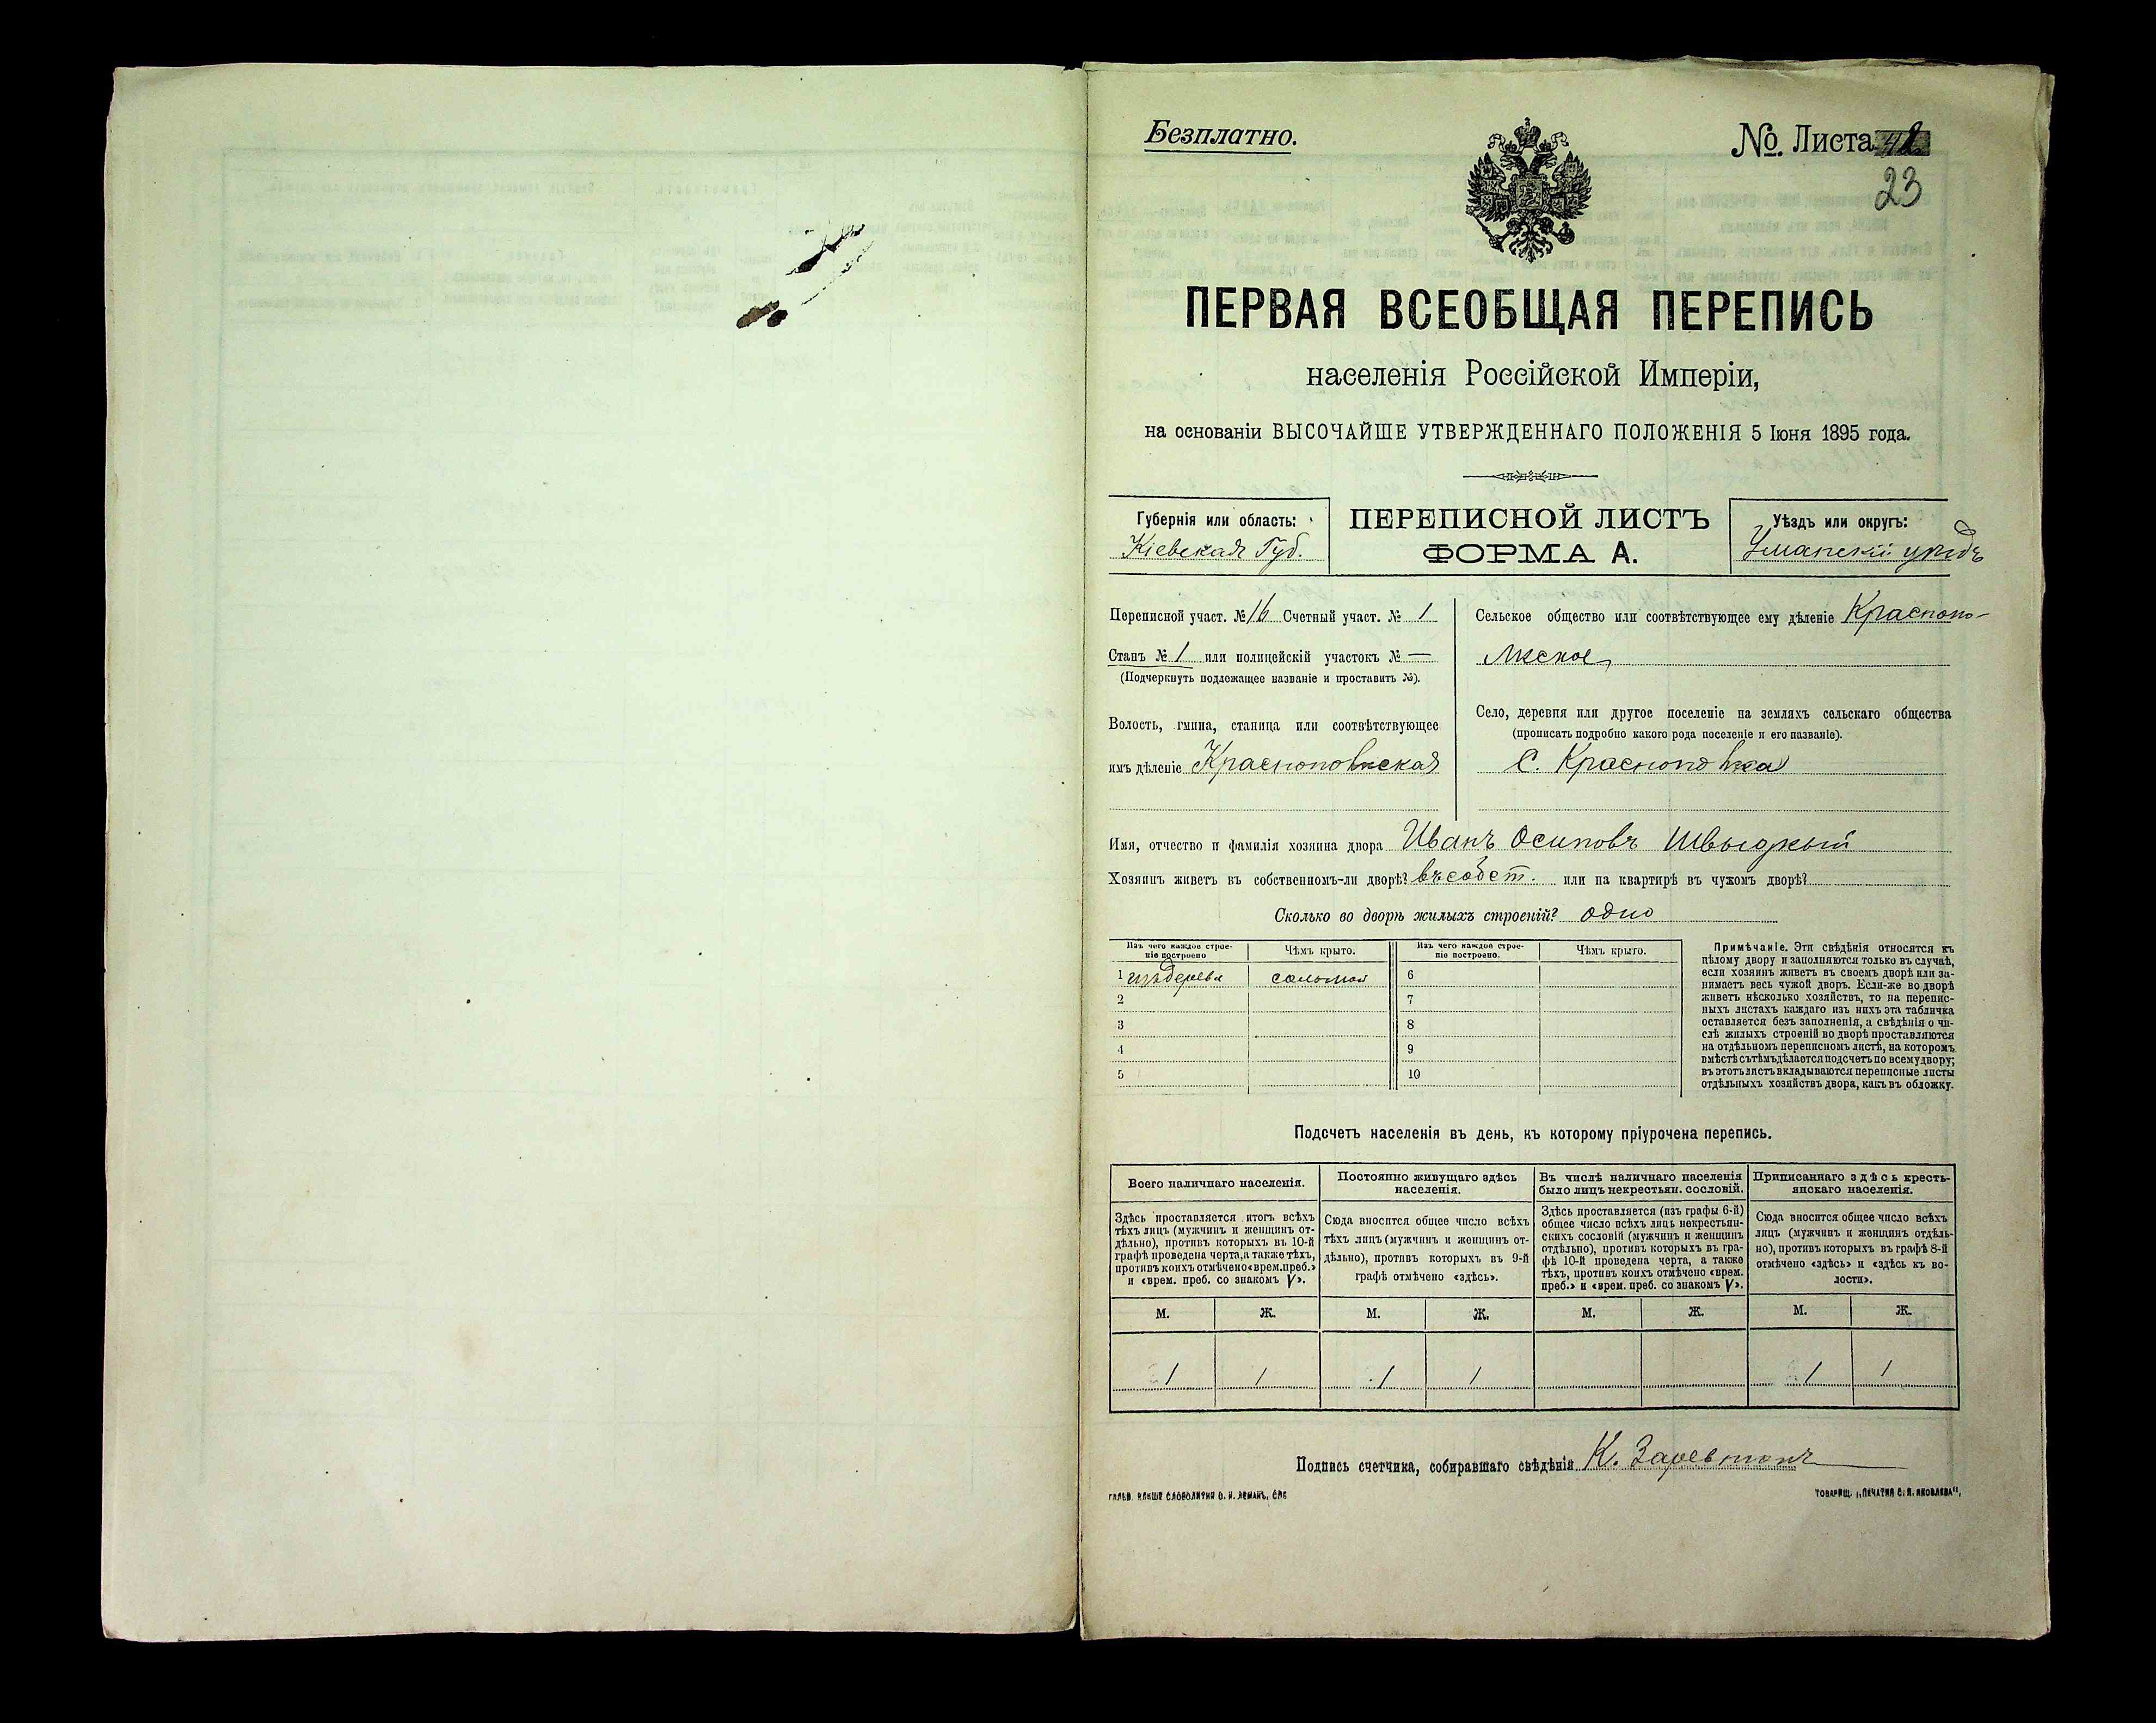 Безплатно.
№ Листа
23
ПЕРВАЯ ВСЕОБЩАЯ ПЕРЕПИСЬ
населенія Россійской Имперіи,
на основаніи ВЫСОЧАЙШЕ УТВЕРЖДЕННАГО ПОЛОЖЕНІЯ 5 Іюня 1895 года.
Губернія или область:
Кіевская Губ.
ПЕРЕПИСНОЙ ЛИСТЪ
ФОРМА А.
Уѣздъ или округъ:
Уманскій уѣздъ
Переписной участ. № 16 Счетный участ. № 1
Станъ № 1 или полицейскій участокъ № —
(Подчеркнуть подлежащее названіе и проставить №).
Волость, гмина, станица или соотвѣтствующее
имъ дѣленіе Краснопольская
Сельское общество или соотвѣтствующее ему дѣленіе Краснопо-
льское
Село, деревня или другое поселеніе на земляхъ сельскаго общества
(прописать подробно какого рода поселеніе и его названіе).
С. Краснополка
Имя, отчество и фамилія хозяина двора Иванъ Осиповъ Швыдкый
Хозяинъ живетъ въ собственномъ-ли дворѣ? въ собст. или на квартирѣ въ чужомъ дворѣ?
Сколько во дворѣ жилыхъ строеній? одно
Изъ чего каждое строе-
ніе построено
Чѣмъ крыто.
Изъ чего каждое строе-
ніе построено.
Чѣмъ крыто.
1 изъ дерева соломой 6
2 7
3 8
4 9
5 10
Примѣчаніе. Эти свѣдѣнія относятся къ
цѣлому двору и заполняются только въ случаѣ,
если хозяинъ живетъ въ своемъ дворѣ или за-
нимаетъ весь чужой дворъ. Если-же во дворѣ
живетъ нѣсколько хозяйствъ, то на перепис-
ныхъ листахъ каждаго изъ нихъ эта табличка
оставляется безъ заполненія, а свѣдѣнія о чи-
слѣ жилыхъ строеній во дворѣ проставляются
на отдѣльномъ переписномъ листѣ, на которомъ
вмѣстѣ съ тѣмъ дѣлается подсчетъ по всему двору;
въ этотъ листъ вкладываются переписные листы
отдѣльныхъ хозяйствъ двора, какъ въ обложку.
Подсчетъ населенія въ день, къ которому пріурочена перепись.
Всего наличнаго населенія.
Здѣсь проставляется итогъ всѣхъ
тѣхъ лицъ (мужчинъ и женщинъ от-
дѣльно), противъ которыхъ въ 10-й
графѣ проведена черта, а также тѣхъ,
противъ коихъ отмѣчено «врем. преб.»
и «врем. преб. со знакомъ V».
Постоянно живущаго здѣсь
населенія.
Сюда вносится общее число всѣхъ
тѣхъ лицъ (мужчинъ и женщинъ от-
дѣльно), противъ которыхъ въ 9-й
графѣ отмѣчено «здѣсь».
Въ числѣ наличнаго населенія
было лицъ некрестьян. сословій.
Здѣсь проставляется (изъ графы 6-й)
общее число всѣхъ лицъ некрестьян-
скихъ сословій (мужчинъ и женщинъ
отдѣльно), противъ которыхъ въ гра-
фѣ 10-й проведена черта, а также
тѣхъ, противъ коихъ отмѣчено «врем.
преб.» и «врем. преб. со знакомъ V».
Приписаннаго здѣсь кресть-
янскаго населенія.
Сюда вносится общее число всѣхъ
лицъ (мужчинъ и женщинъ отдѣль-
но), противъ которыхъ въ графѣ 8-й
отмѣчено «здѣсь» и «здѣсь къ во-
лости».
М. Ж. М. Ж. М. Ж. М. Ж.
1 1 1 1 1 1
Подпись счетчика, собиравшаго свѣдѣнія К.
ТОВАРИЩ. „ПЕЧАТНЯ С. П. ЯКОВЛЕВА“,